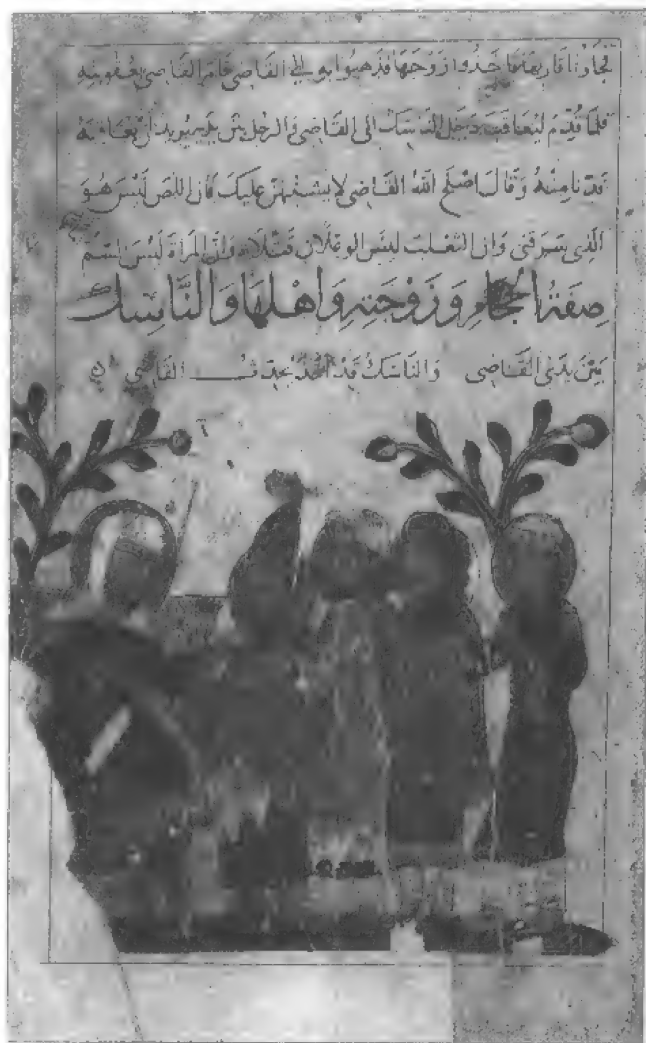 اقاربها فاخذوا زوجها فذهبوا به الى القاضي فامر القاضي بعقوبته
فلما قدم ليعاقب دخل الناسك الى القاضي والرجل بين يديه يريد ان يعاقبه
فدنا منه وقال اصلح الله القاضي لا يشتبهن عليك فان اللص ليس هو
الذي سرقني وان الثعلب ليس الوعلان قتلاه وان المراة ليس السم
صفة الحجام وزوجته واهلها والناسك
بين يدي القاضي والناسك قد اخذ يحدث القاضي